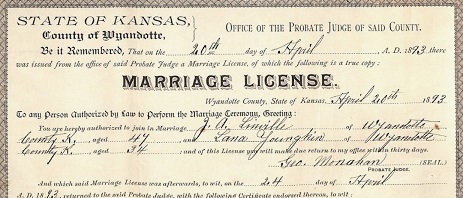 STATE OF KANSAS,
County of Wyandotte,
OFFICE OF THE PROBATE JUDGE OF SAID COUNTY.
Be it Remembered, That on the 20th day of April A. D. 1893, there
was issued from the office of said Probate Judge a Marriage License, of which the following is a true copy:
MARRIAGE LICENSE.
Wyandotte County, State of Kansas, April 20th 1893.
To any Person Authorized by Law to Perform the Marriage Ceremony, Greeting:
You are hereby authorized to join in Marriage J. A. Linville of Wyandotte
County K. aged 47 and Lana Youngkin of Wyandotte
County K. aged 34 and of this License you will make due return to my office within thirty days.
Geo. Monahan (SEAL)
PROBATE JUDGE.
And which said Marriage License was afterwards, to wit, on the 24 day of April
A. D. 1893, returned to the said Probate Judge, with the following Certificate endorsed thereon, to wit: